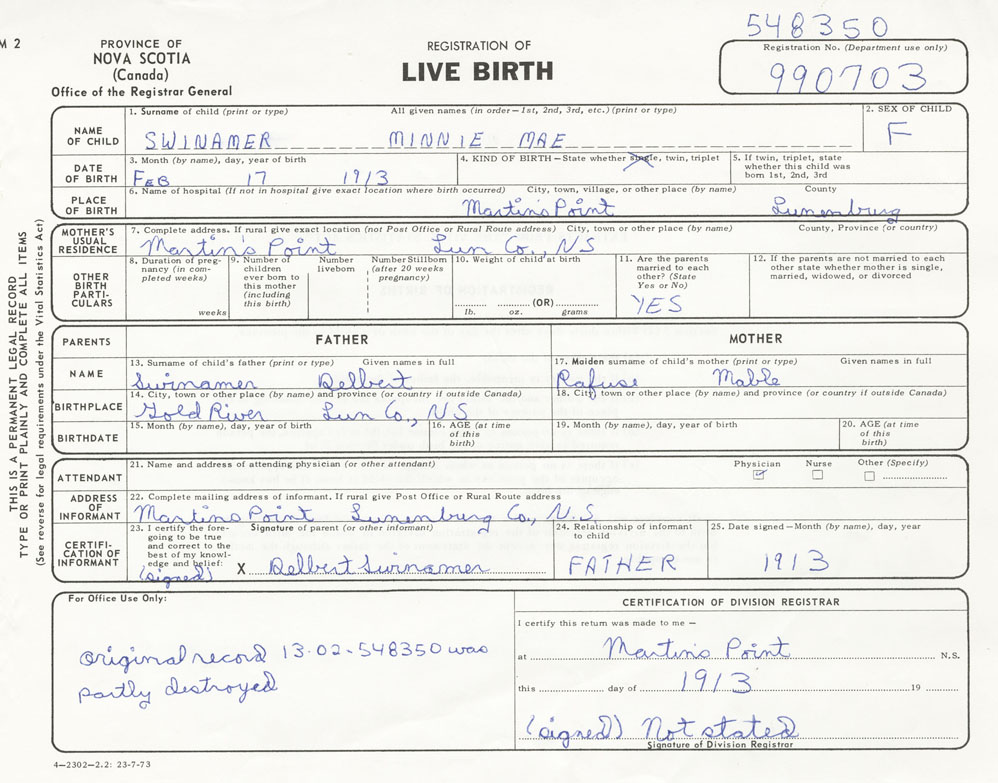 548350
M 2
PROVINCE OF
NOVA SCOTIA
(Canada)
Office of the Registrar General
REGISTRATION OF
LIVE BIRTH
Registration No. (Department use only)
990703
THIS IS A PERMANENT LEGAL RECORD
TYPE OR PRINT PLAINLY AND COMPLETE ALL ITEMS
(See reverse for legal requirements under the Vital Statistics Act)
NAME OF CHILD
1. Surname of child (print or type) All given names (in order—1st, 2nd, 3rd, etc.) (print or type)
SWINAMER MINNIE MAE
2. SEX OF CHILD
F
DATE OF BIRTH
3. Month (by name), day, year of birth
FEB 17 1913
4. KIND OF BIRTH—State whether single, twin, triplet
5. If twin, triplet, state
whether this child was
born 1st, 2nd, 3rd
PLACE OF BIRTH
6. Name of hospital (If not in hospital give exact location where birth occurred) City, town, village, or other place (by name) County
Martin's Point Lunenburg
MOTHER'S USUAL RESIDENCE
7. Complete address. If rural give exact location (not Post Office or Rural Route address) City, town or other place (by name) County, Province (or country)
Martin's Point Lun Co., NS
OTHER BIRTH PARTI-CULARS
8. Duration of preg-
nancy (in com-
pleted weeks)
weeks
9. Number of
children
ever born to
this mother
(including
this birth)
Number
liveborn
Number Stillborn
(after 20 weeks
pregnancy)
10. Weight of child at birth
(OR)
lb. oz. grams
11. Are the parents
married to each
other? (State
Yes or No)
YES
12. If the parents are not married to each
other state whether mother is single,
married, widowed, or divorced
PARENTS FATHER MOTHER
NAME
13. Surname of child's father (print or type) Given names in full
Swinamer Delbert
17. Maiden surname of child's mother (print or type) Given names in full
Rafuse Mable
BIRTHPLACE
14. City, town or other place (by name) and province (or country if outside Canada)
Gold River Lun Co., NS
18. City, town or other place (by name) and province (or country if outside Canada)
BIRTHDATE
15. Month (by name), day, year of birth
16. AGE (at time
of this
birth)
19. Month (by name), day, year of birth
20. AGE (at time
of this
birth)
ATTENDANT
21. Name and address of attending physician (or other attendant)
Physician Nurse Other (Specify)
ADDRESS OF INFORMANT
22. Complete mailing address of informant. If rural give Post Office or Rural Route address
Martins Point Lunenburg Co., N.S.
CERTIFI-CATION OF INFORMANT
23. I certify the fore-
going to be true
and correct to the
best of my knowl-
edge and belief:
(signed)
Signature of parent (or other informant)
X Delbert Swinamer
24. Relationship of informant
to child
FATHER
25. Date signed—Month (by name), day, year
1913
For Office Use Only:
Original record 13-02-548350 was
partly destroyed
CERTIFICATION OF DIVISION REGISTRAR
I certify this return was made to me —
at Martins Point N.S.
this day of 1913 19
(signed) Not stated
Signature of Division Registrar
4—2302—2.2: 23-7-73